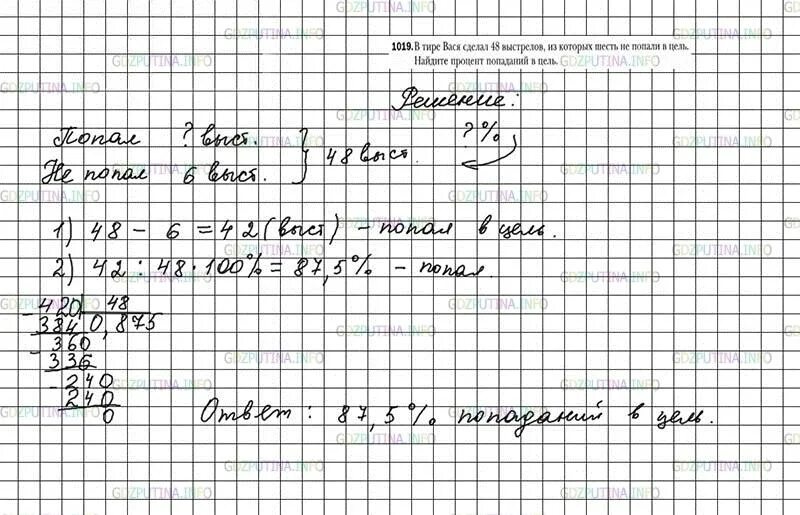 GDZPUTINA.INFO
1019. В тире Вася сделал 48 выстрелов, из которых шесть не попали в цель.
Найдите процент попаданий в цель.
Решение:
Попал ? выст.
Не попал 6 выст.
} 48 выст.
? %
1) 48 - 6 = 42 (выст) - попал в цель.
2) 42 : 48 · 100% = 87,5% - попал
- 420 | 48
384 0,875
- 360
336
- 240
240
0
Ответ: 87,5% попаданий в цель.